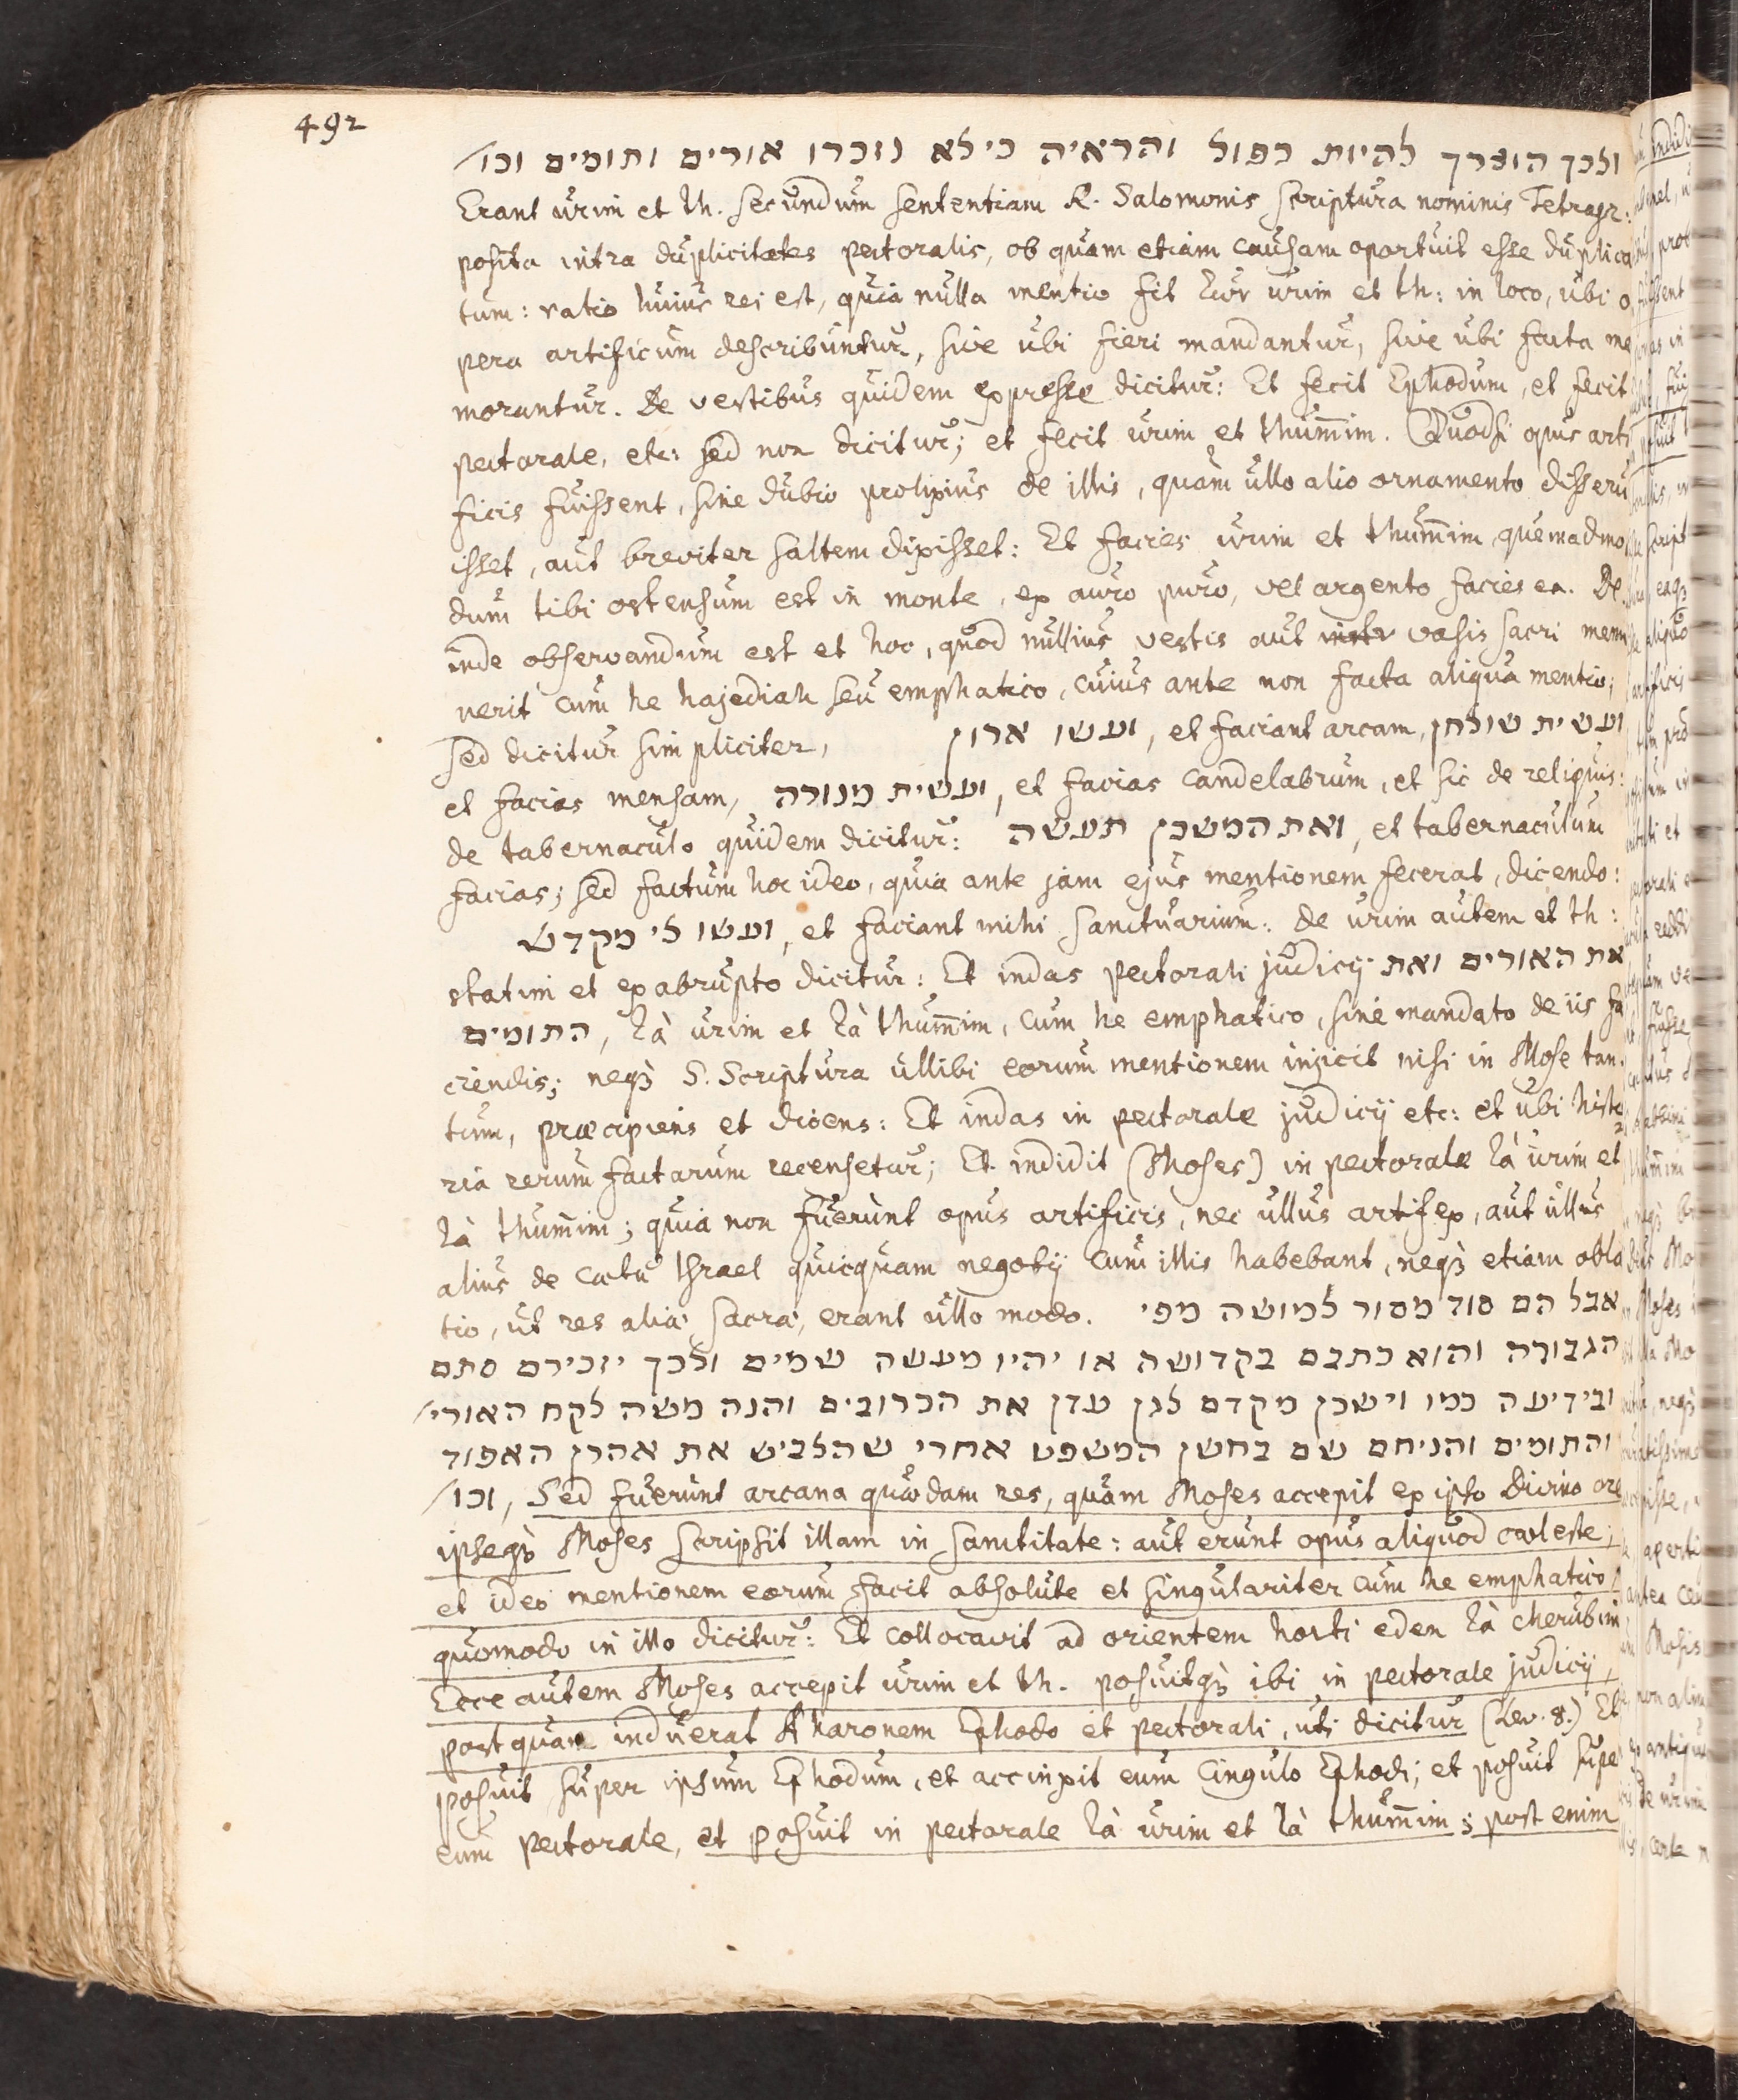 492
ולכך הוצרך להיות כפול והראיה כי לא נזכרו אורים ותומים וכו/
Erant urim et th. secundum sententiam R. Salomonis scriptura nominis Tetragr:
posita intra duplicitates pectoralis, ob quam etiam causam oportuit esse duplica
tum: ratio huius rei est, quia nulla mentio fit τῶν urim et th: in loco, ubi o
pera artificum describuntur, sive ubi fieri mandantur, sive ubi facta me
morantur. De vestibus quidem expresse dicitur: Et fecit Ephodum, et fecit
pectorale, etc: sed non dicitur; et fecit urim et thum̄im. Quodsi opus arti
ficis fuissent, sine dubio prolixius de illis, quàm ullo alio ornamento disseru
isset, aut breviter saltem dixisset: Et facies urim et thum̄im, quemadmo
dum tibi ostensum est in monte, ex auro puro, vel argento facies ea. De
inde observandum est et hoc, quod nullius vestis aut vasis sacri memi
nerit cum he hajediah seu emphatico, cuius ante non facta aliqua mentio;
sed dicitur simpliciter, ועשו ארון, et faciant arcam, ועשית שולחן
et facias mensam, ועשית מנורה, et facias candelabrum, et sic de reliquis:
de tabernaculo quidem dicitur: ואת המשכן תעשה, et tabernaculum
facias; sed factum hoc ideo, quia ante jam ejus mentionem fecerat, dicendo:
ועשו לי מקדש, et faciant mihi sanctuarium: de urim autem et th:
statim et ex abrupto dicitur: Et indas pectorali judicij את האורים ואת
התומים, τὰ urim et τὰ thum̄im, cum he emphatico, sine mandato de iis fa
ciendis; neqꝫ S. Scriptura ullibi eorum mentionem injicit nisi in Mose tan-
tum, præcipiens et dicens: Et indas in pectorale judicij etc: et ubi histo
ria rerum factarum recensetur; Et indidit (Moses) in pectorale τὰ urim et
τὰ thum̄im; quia non fuerunt opus artificis, nec ullus artifex, aut ullus
alius de cœtu Israel quicquam negotij cum illis habebant, neqꝫ etiam obla
tio, ut res aliæ sacræ, erant ullo modo. אבל הם סוד מסור למושה מפי
הגבורה והוא כתבם בקדושה או יהיו מעשה שמים ולכך יזכירם סתם
ובידיעה כמו וישכן מקדם לגן עדן את הכרובים והנה משה לקח האורי/
והתומים והניחם שם בחשן המשפט אחרי שהלביש את אהרן האפוד
וכו/, Sed fuerunt arcana quædam res, quam Moses accepit ex ipso Divino ore
ipseqꝫ Moses scripsit illam in sanctitate: aut erunt opus aliquod cœleste;
et ideo mentionem eorum facit absolute et singulariter cum he emphatico,
quomodo in illo dicitur: Et collocavit ad orientem horti eden τὰ cherubim
Ecce autem Moses accepit urim et th. posuitqꝫ ibi in pectorale judicij,
postquam induerat Aharonem Ephodo et pectorali, uti dicitur (Lev. 8.) Et
posuit super ipsum Ephodum, et accinxit eum Cingulo Ephodi; et posuit supe
eum pectorale, et posuit in pectorale τὰ urim et τὰ thum̄im; post enim